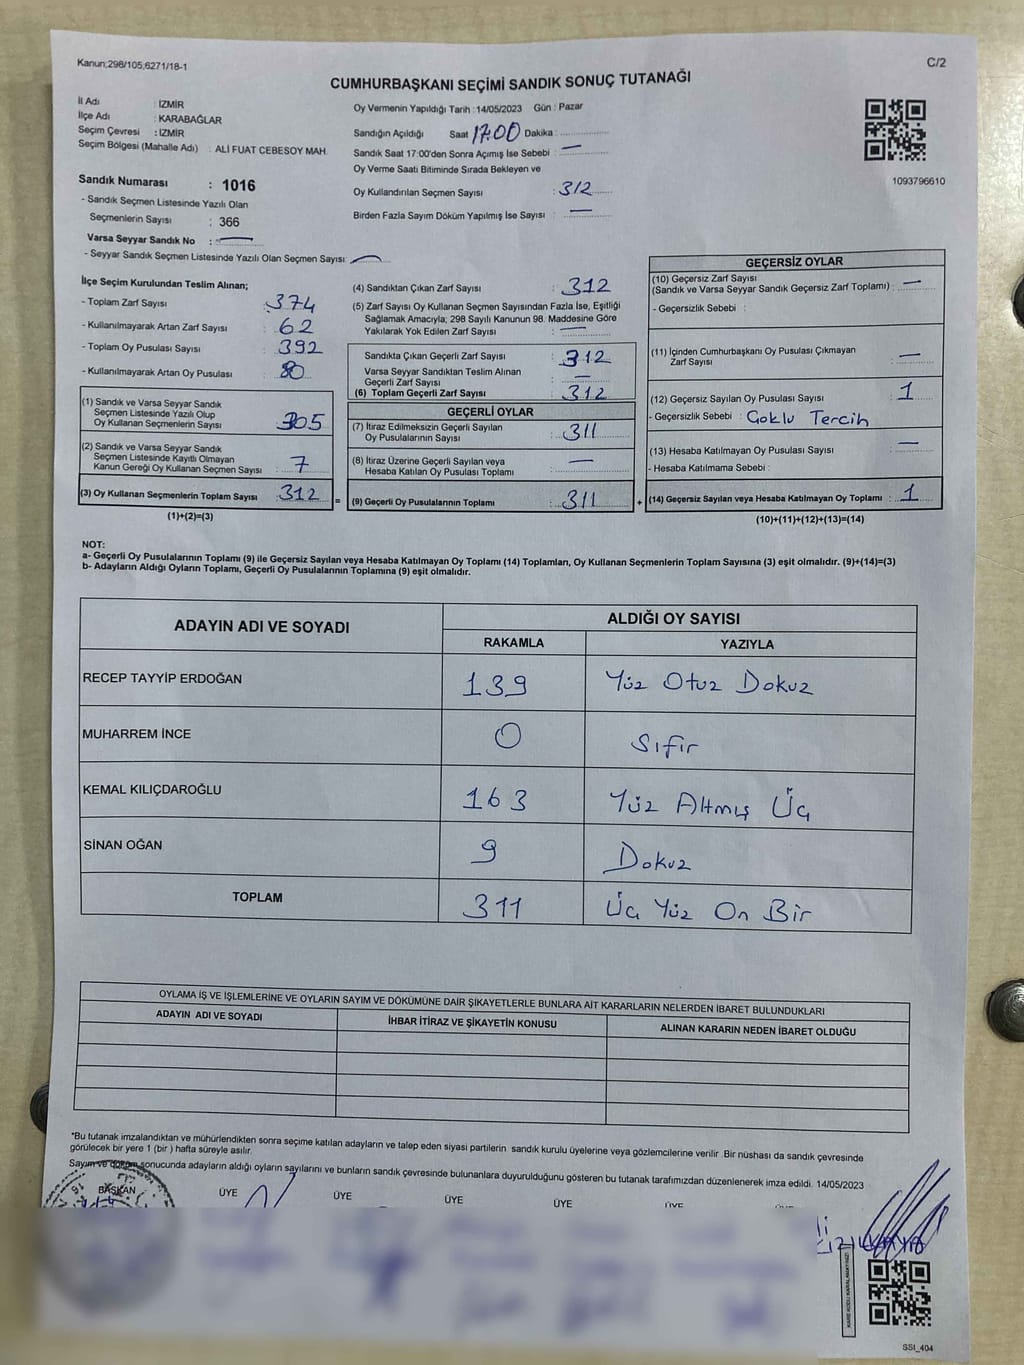 Kanun;298/105;6271/18-1
C/2
CUMHURBAŞKANI SEÇİMİ SANDIK SONUÇ TUTANAĞI
İl Adı : İZMİR
İlçe Adı : KARABAĞLAR
Seçim Çevresi : İZMİR
Seçim Bölgesi (Mahalle Adı) : ALİ FUAT CEBESOY MAH.
Sandık Numarası : 1016
- Sandık Seçmen Listesinde Yazılı Olan
Seçmenlerin Sayısı : 366
Varsa Seyyar Sandık No : —
- Seyyar Sandık Seçmen Listesinde Yazılı Olan Seçmen Sayısı: —
Oy Vermenin Yapıldığı Tarih : 14/05/2023 Gün : Pazar
Sandığın Açıldığı Saat 17:00 Dakika :
Sandık Saat 17:00'den Sonra Açımış İse Sebebi : —
Oy Verme Saati Bitiminde Sırada Bekleyen ve
Oy Kullandırılan Seçmen Sayısı : 312
Birden Fazla Sayım Döküm Yapılmış İse Sayısı : —
1093796610
İlçe Seçim Kurulundan Teslim Alınan;
- Toplam Zarf Sayısı : 374
- Kullanılmayarak Artan Zarf Sayısı : 62
- Toplam Oy Pusulası Sayısı : 392
- Kullanılmayarak Artan Oy Pusulası : 80
(1) Sandık ve Varsa Seyyar Sandık
Seçmen Listesinde Yazılı Olup
Oy Kullanan Seçmenlerin Sayısı : 305
(2) Sandık ve Varsa Seyyar Sandık
Seçmen Listesinde Kayıtlı Olmayan
Kanun Gereği Oy Kullanan Seçmen Sayısı : 7
(3) Oy Kullanan Seçmenlerin Toplam Sayısı : 312
(1)+(2)=(3)
(4) Sandıktan Çıkan Zarf Sayısı : 312
(5) Zarf Sayısı Oy Kullanan Seçmen Sayısından Fazla İse, Eşitliği
Sağlamak Amacıyla; 298 Sayılı Kanunun 98. Maddesine Göre
Yakılarak Yok Edilen Zarf Sayısı : —
Sandıkta Çıkan Geçerli Zarf Sayısı : 312
Varsa Seyyar Sandıktan Teslim Alınan
Geçerli Zarf Sayısı : —
(6) Toplam Geçerli Zarf Sayısı : 312
GEÇERLİ OYLAR
(7) İtiraz Edilmeksizin Geçerli Sayılan
Oy Pusulalarının Sayısı : 311
(8) İtiraz Üzerine Geçerli Sayılan veya
Hesaba Katılan Oy Pusulası Toplamı : —
= (9) Geçerli Oy Pusulalarının Toplamı : 311
GEÇERSİZ OYLAR
(10) Geçersiz Zarf Sayısı
(Sandık ve Varsa Seyyar Sandık Geçersiz Zarf Toplamı) : —
- Geçersizlik Sebebi :
(11) İçinden Cumhurbaşkanı Oy Pusulası Çıkmayan
Zarf Sayısı : —
(12) Geçersiz Sayılan Oy Pusulası Sayısı : 1
- Geçersizlik Sebebi : Çoklu Tercih
(13) Hesaba Katılmayan Oy Pusulası Sayısı : —
- Hesaba Katılmama Sebebi :
+ (14) Geçersiz Sayılan veya Hesaba Katılmayan Oy Toplamı : 1
(10)+(11)+(12)+(13)=(14)
NOT:
a- Geçerli Oy Pusulalarının Toplamı (9) ile Geçersiz Sayılan veya Hesaba Katılmayan Oy Toplamı (14) Toplamları, Oy Kullanan Seçmenlerin Toplam Sayısına (3) eşit olmalıdır. (9)+(14)=(3)
b- Adayların Aldığı Oyların Toplamı, Geçerli Oy Pusulalarının Toplamına (9) eşit olmalıdır.
ADAYIN ADI VE SOYADI
ALDIĞI OY SAYISI
RAKAMLA YAZIYLA
RECEP TAYYİP ERDOĞAN 139 Yüz Otuz Dokuz
MUHARREM İNCE 0 Sıfır
KEMAL KILIÇDAROĞLU 163 Yüz Altmış Üç
SİNAN OĞAN 9 Dokuz
TOPLAM 311 Üç Yüz On Bir
OYLAMA İŞ VE İŞLEMLERİNE VE OYLARIN SAYIM VE DÖKÜMÜNE DAİR ŞİKAYETLERLE BUNLARA AİT KARARLARIN NELERDEN İBARET BULUNDUKLARI
ADAYIN ADI VE SOYADI İHBAR İTİRAZ VE ŞİKAYETİN KONUSU ALINAN KARARIN NEDEN İBARET OLDUĞU
*Bu tutanak imzalandıktan ve mühürlendikten sonra seçime katılan adayların ve talep eden siyasi partilerin sandık kurulu üyelerine veya gözlemcilerine verilir .Bir nüshası da sandık çevresinde
görülecek bir yere 1 (bir ) hafta süreyle asılır.
Sayım ve döküm sonucunda adayların aldığı oyların sayılarını ve bunların sandık çevresinde bulunanlara duyurulduğunu gösteren bu tutanak tarafımızdan düzenlenerek imza edildi. 14/05/2023
BAŞKAN ÜYE ÜYE ÜYE ÜYE ÜYE
SSI_404